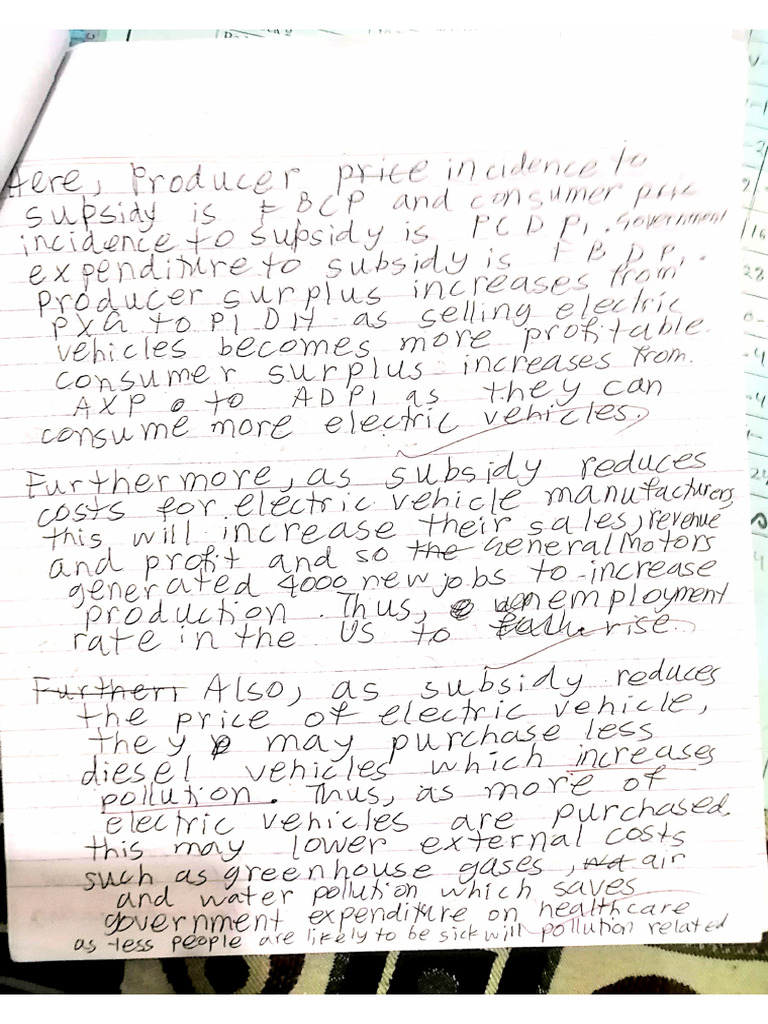 Here, Producer price incidence to
supsidy is FBCP and consumer price
incidence to supsidy is PCDP1. Government
expenditure to subsidy is FBDP1.
producer surplus increases from
PXG to P1DH as selling electric
vehicles becomes more profitable.
consumer surplus increases from
AXP to ADP1 as they can
consume more electric vehicles.
Furthermore, as subsidy reduces
costs for electric vehicle manufacturers,
this will increase their sales, revenue
and profit and so the General Motors
generated 4000 new jobs to increase
production. Thus, unemployment
rate in the US to rise.
Further, Also, as subsidy reduces
the price of electric vehicle,
they may purchase less
diesel vehicles which increases
pollution. Thus, as more of
electric vehicles are purchased,
this may lower external costs
such as greenhouse gases, air
and water pollution which saves
government expenditure on healthcare
as less people are likely to be sick will pollution related